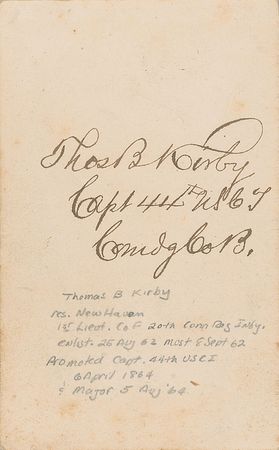 Thos B Kirby
Capt 44th US C T
Comdg Co B.
Thomas B Kirby
res. New Haven
1st Lieut. Co F 20th Conn Reg Infy.
enlist. 25 Aug 62 must 8 Sept 62
Promoted Capt. 44th USCI
6 April 1864
& Major 5 Aug '64